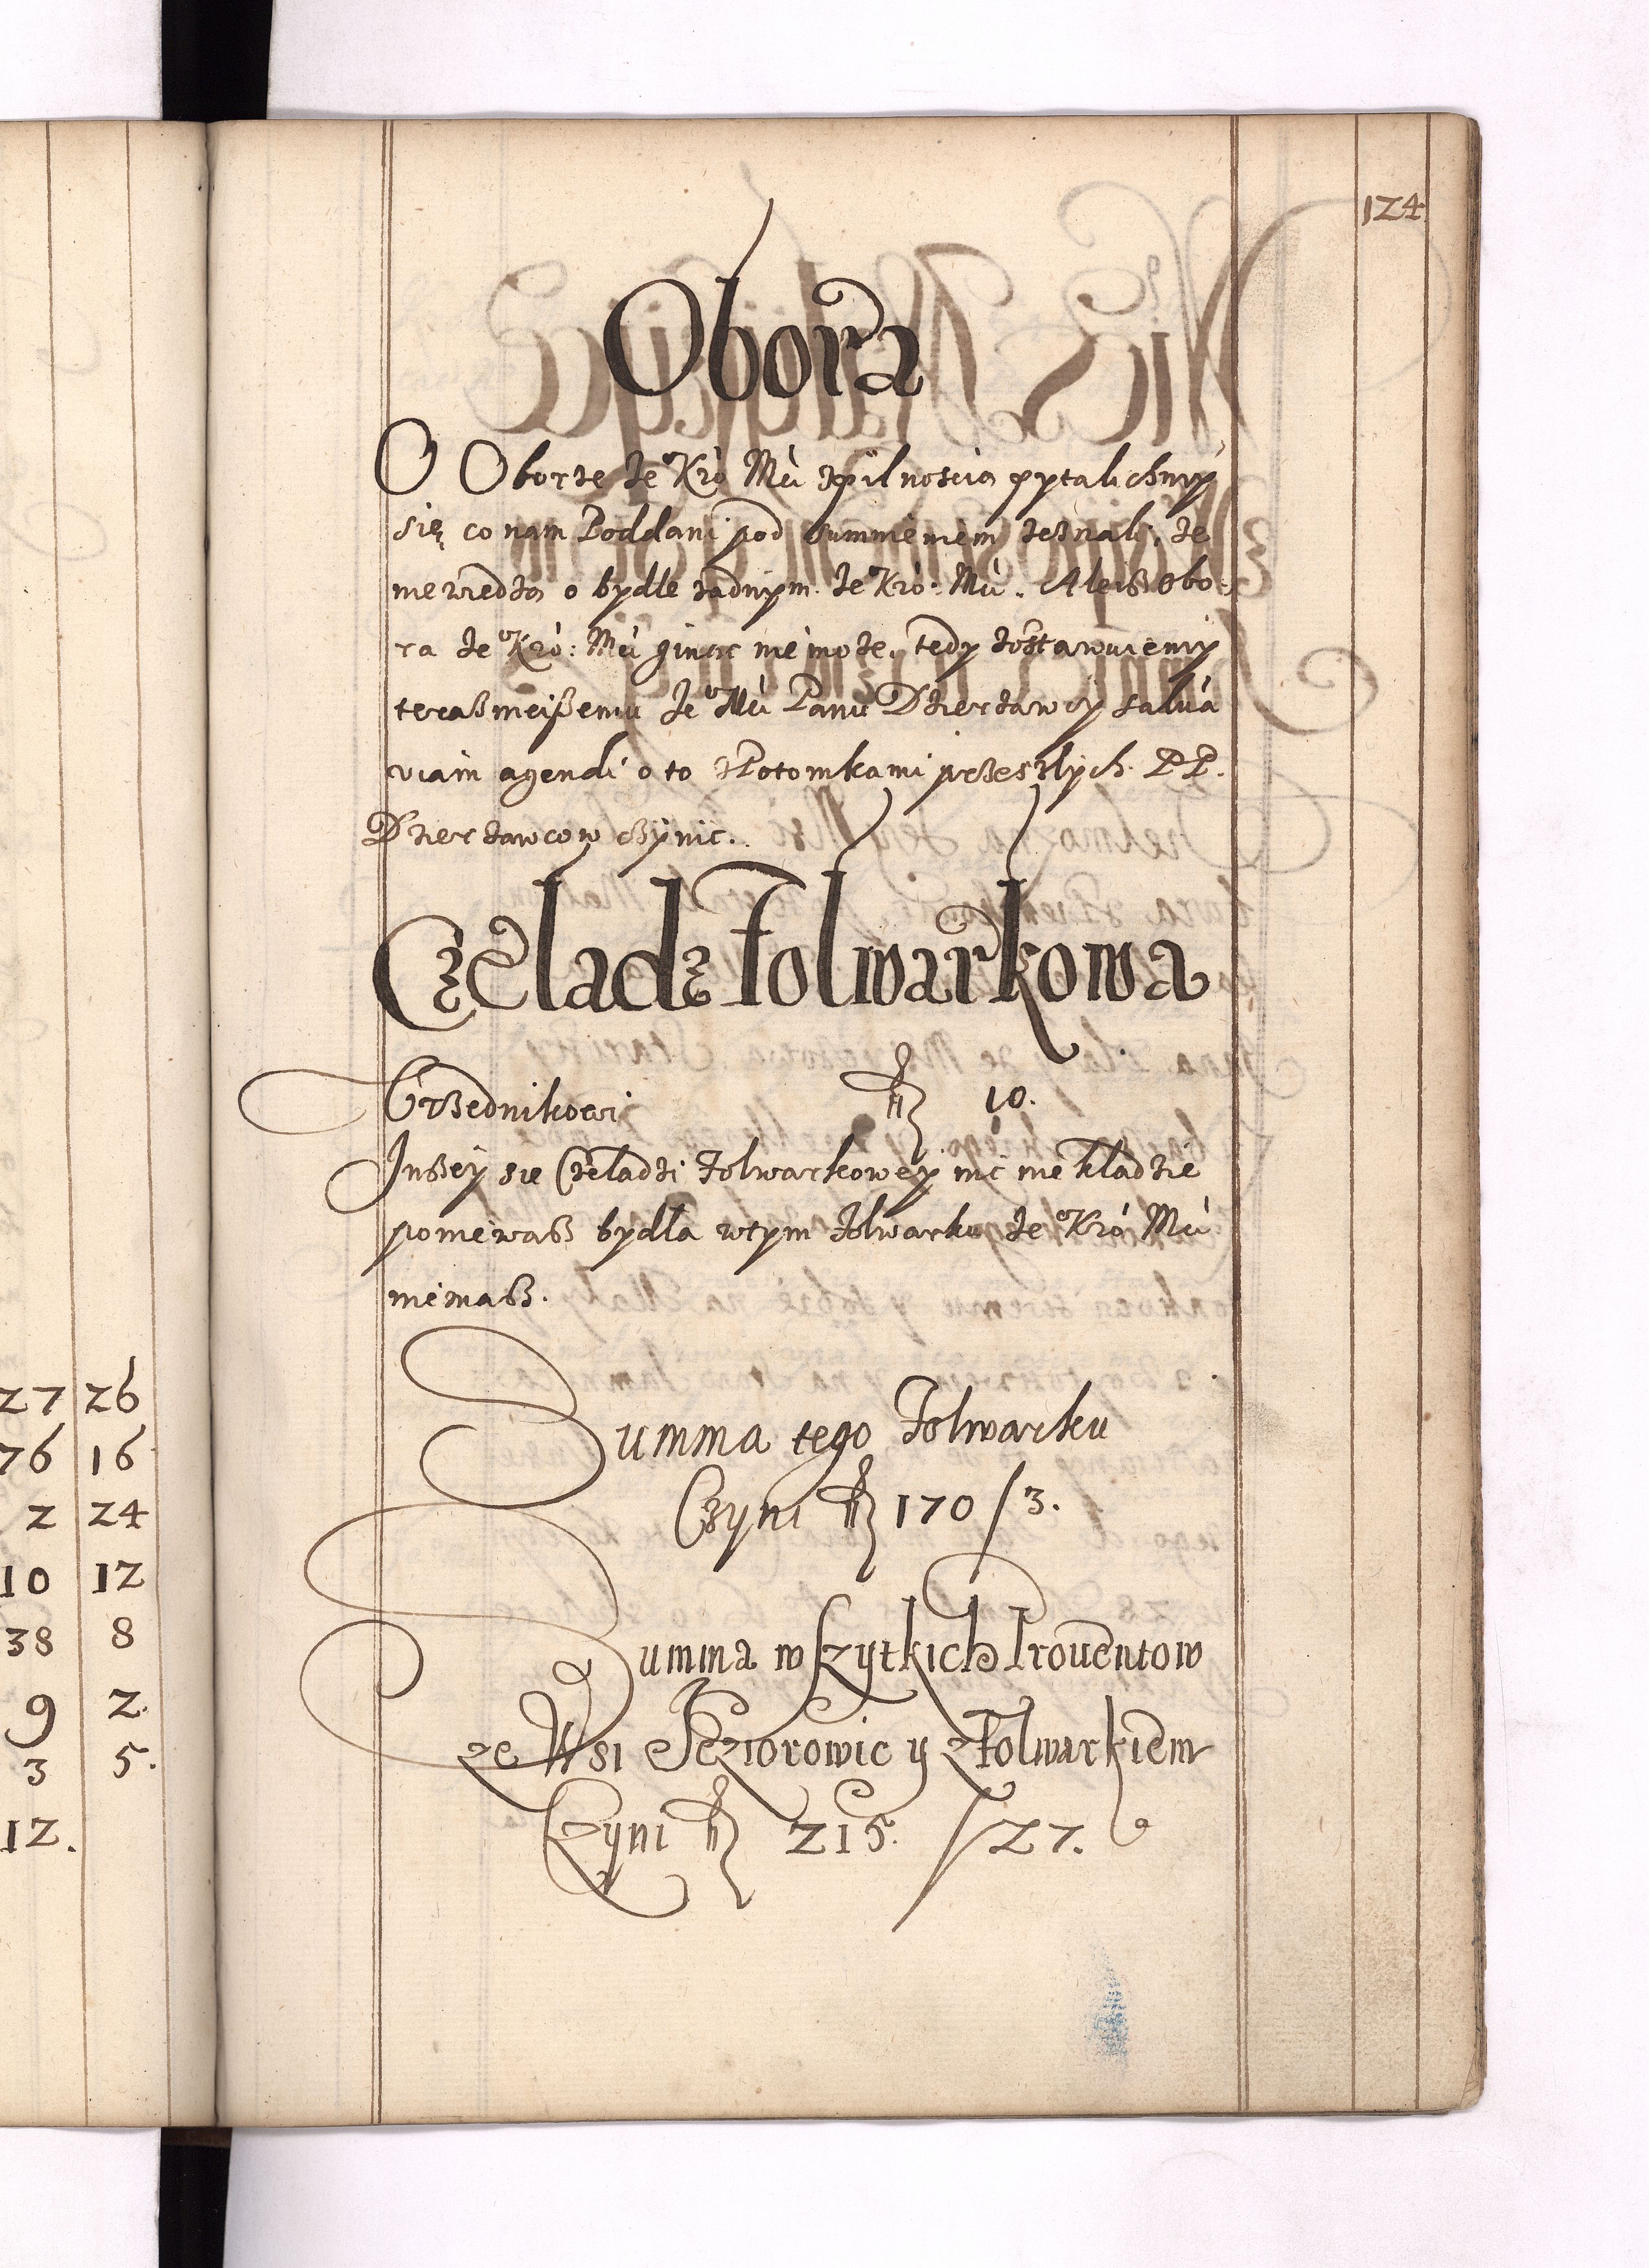 124
Obora
O Oborze Je° Kró Mći zpilnoscią pytalichmy
się, co nam Poddani pod summieniem zeznali, ze
niewiedzą o bydle zadnym Je° Kró: Mći. Aleisz Obo-
ra Je° Kró: Mći ginąc niemoze, tedy zostawuiemy
terasznieiszemu Je° Mći Panu Dzierzawcy salua
viam agendi o to zPotomkami przeszłych PP.
Dzierzawcow czynic.
Czeladz folwarkowa
Vrzednikowi fl 10.
Inszey sie Czeladzi folwarkowey nic niekładzie
poniewasz bydła wtym folwarku Je° Kró Mći
niemasz.
Summa tego Folwarku
Czyni fl 170 / 3.
Summa wszytkich Prouentow
ze Wsi Jeziorowic y zFolwarkiem
Czyni fl 215. / 27.
27 26
76 16
2 24
10 12
38 8
9 2.
3 5.
12.